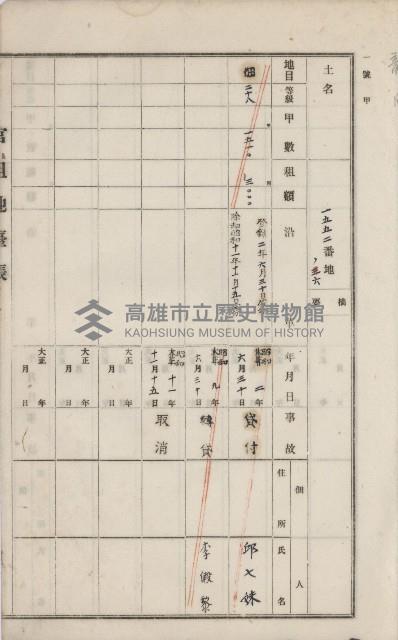 一號甲
土名
一五五二番地
ノ五六
摘要
地目
等級
甲數
租額
沿革
年月日
事故
佃人
住所
氏名
畑
二十八
一五一〇
三〇二〇
登錄二年六月三十日
除却昭和十一年十一月十五日
昭和
大正
二年
六月三十日
貸付
邱七妹
昭和
大正
九年
六月三十日
轉貸
李傲黎
昭和
大正
十一年
十一月十五日
取消
大正 年
月 日
大正 年
月 日
大正 年
月 日
官租地臺帳
高雄市立歷史博物館
KAOHSIUNG MUSEUM OF HISTORY